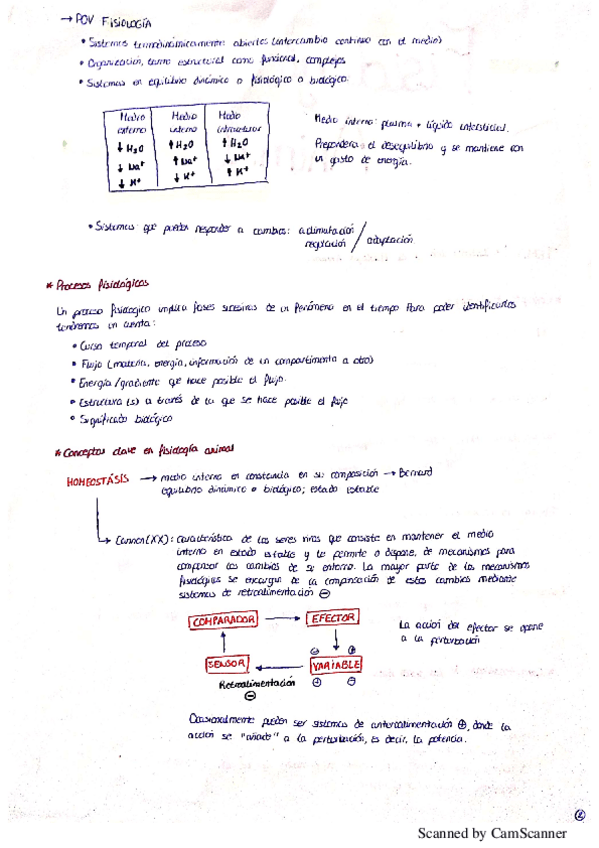 → POV FISIOLOGÍA
• Sistemas termodinámicamente abiertos (intercambio continuo con el medio)
• Organización, tanto estructural como funcional, complejas
• Sistemas en equilibrio dinámico o fisiológico o biológico.
Medio externo
↓ H2O
↓ Na+
↓ K+
Medio interno
↑ H2O
↑ Na+
↓ K+
Medio intracelular
↑ H2O
↓ Na+
↑ K+
Medio interno: plasma + líquido intersticial.
Prepondera el desequilibrio y se mantiene con
un gasto de energía.
• Sistemas que pueden responder a cambios: aclimatación /
regulación / adaptación
* Procesos fisiológicos
Un proceso fisiológico implica fases sucesivas de un fenómeno en el tiempo. Para poder identificarlos
tendremos en cuenta:
• Curso temporal del proceso
• Flujo (materia, energía, información de un compartimento a otro)
• Energía / gradiente que hace posible el flujo.
• Estructura (s) a través de la que se hace posible el flujo
• Significado biológico
* Conceptos clave en fisiología animal
HOMEOSTÁSIS → medio interno en constancia en su composición → Bernard
equilibrio dinámico o biológico; estado estable
→ Cannon (XX): característica de los seres vivos que consiste en mantener el medio
interno en estado estable y le permite o dispone, de mecanismos para
compensar los cambios de su entorno. La mayor parte de los mecanismos
fisiológicos se encargan de la compensación de estos cambios mediante
sistemas de retroalimentación ⊖
COMPARADOR → EFECTOR
SENSOR ← VARIABLE
⊕ ⊖
Retroalimentación
⊖
La acción del efector se opone
a la perturbación
Ocasionalmente pueden ser sistemas de retroalimentación ⊕, donde la
acción se "añade" a la perturbación, es decir, la potencia.
Scanned by CamScanner